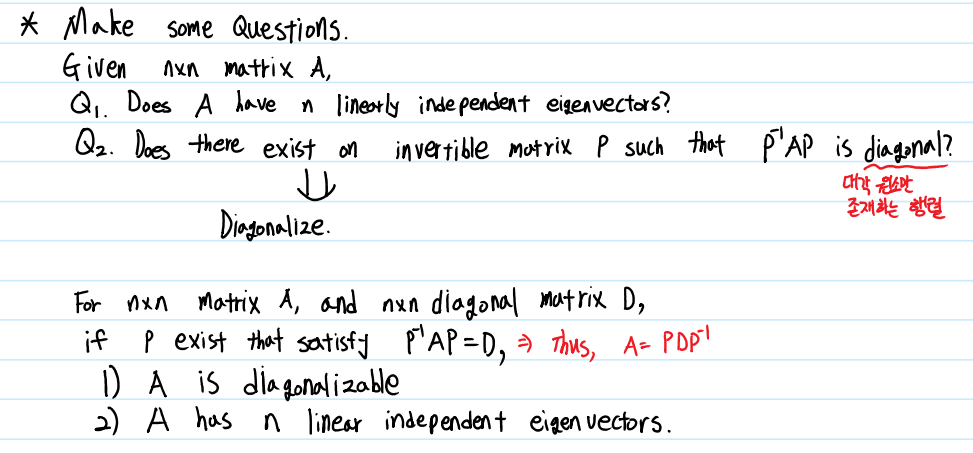 * Make some Questions.
Given n×n matrix A,
Q₁. Does A have n linearly independent eigenvectors?
Q₂. Does there exist an invertible matrix P such that P⁻¹AP is diagonal?
대각 원소만
존재하는 행렬
⇓
Diagonalize.
For n×n matrix A, and n×n diagonal matrix D,
if P exist that satisfy P⁻¹AP=D, ⇒ Thus, A= PDP⁻¹
1) A is diagonalizable
2) A has n linear independent eigenvectors.